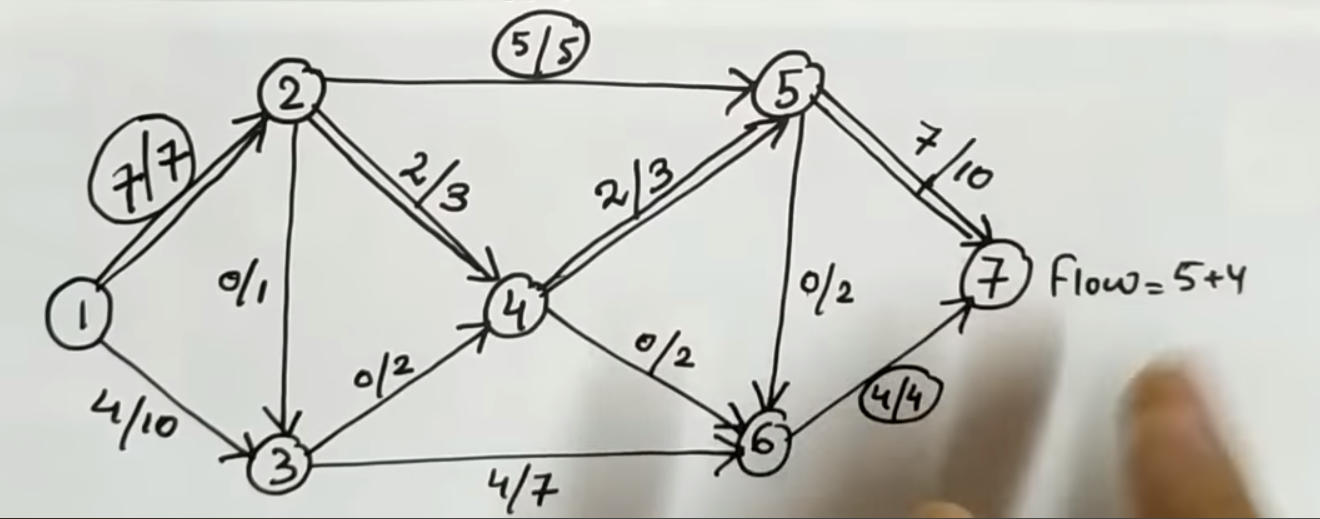 5/5
2
5
7/7
2/3
2/3
7/10
1
0/1
4
0/2
7
Flow = 5+4
0/2
0/2
4/10
4/4
3
6
4/7